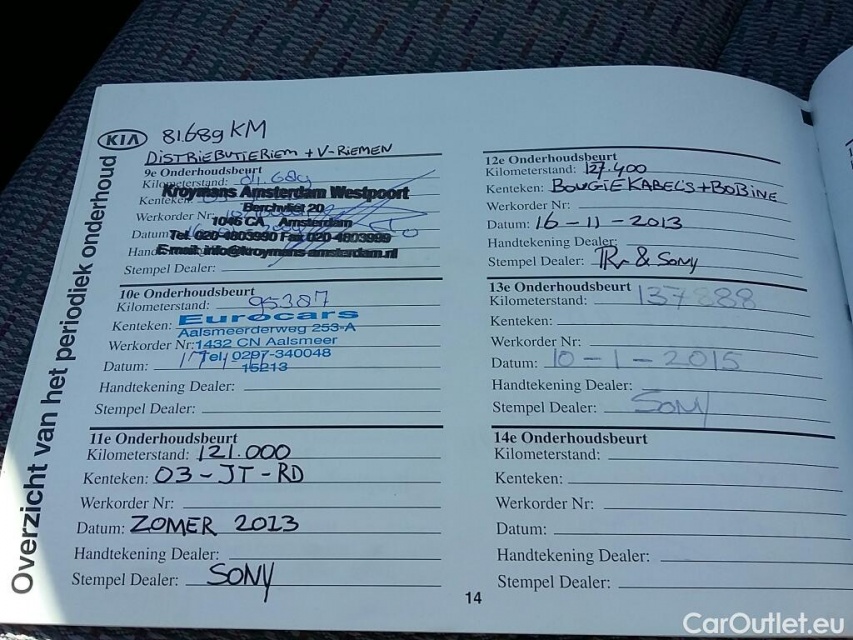 Overzicht van het periodiek onderhoud
KIA 81.689 KM
DISTRIEBUTIERIEM + V-RIEMEN
9e Onderhoudsbeurt
Kilometerstand: 81.689
Kroymans Amsterdam Westpoort
Kenteken:
Berchvliet 20
Werkorder Nr:
1046 CA Amsterdam
Datum:
Tel. 020-4803990 Fax 020-4803999
E-mail: info@kroymans-amsterdam.nl
Stempel Dealer:
10e Onderhoudsbeurt
Kilometerstand: 95387
Eurocars
Kenteken: Aalsmeerderweg 253-A
Werkorder Nr: 1432 CN Aalsmeer
Tel. 0297-340048
Datum: 15213
Handtekening Dealer:
Stempel Dealer:
11e Onderhoudsbeurt
Kilometerstand: 121.000
Kenteken: 03-JT-RD
Werkorder Nr:
Datum: ZOMER 2013
Handtekening Dealer:
Stempel Dealer: SONY
12e Onderhoudsbeurt
Kilometerstand: 127.400
Kenteken: BOUGIEKABELS+BOBINE
Werkorder Nr:
Datum: 16-11-2013
Handtekening Dealer:
Stempel Dealer: & SONY
13e Onderhoudsbeurt
Kilometerstand: 137288
Kenteken:
Werkorder Nr:
Datum: 10-1-2015
Handtekening Dealer:
Stempel Dealer: SONY
14e Onderhoudsbeurt
Kilometerstand:
Kenteken:
Werkorder Nr:
Datum:
Handtekening Dealer:
Stempel Dealer:
14
CarOutlet.eu